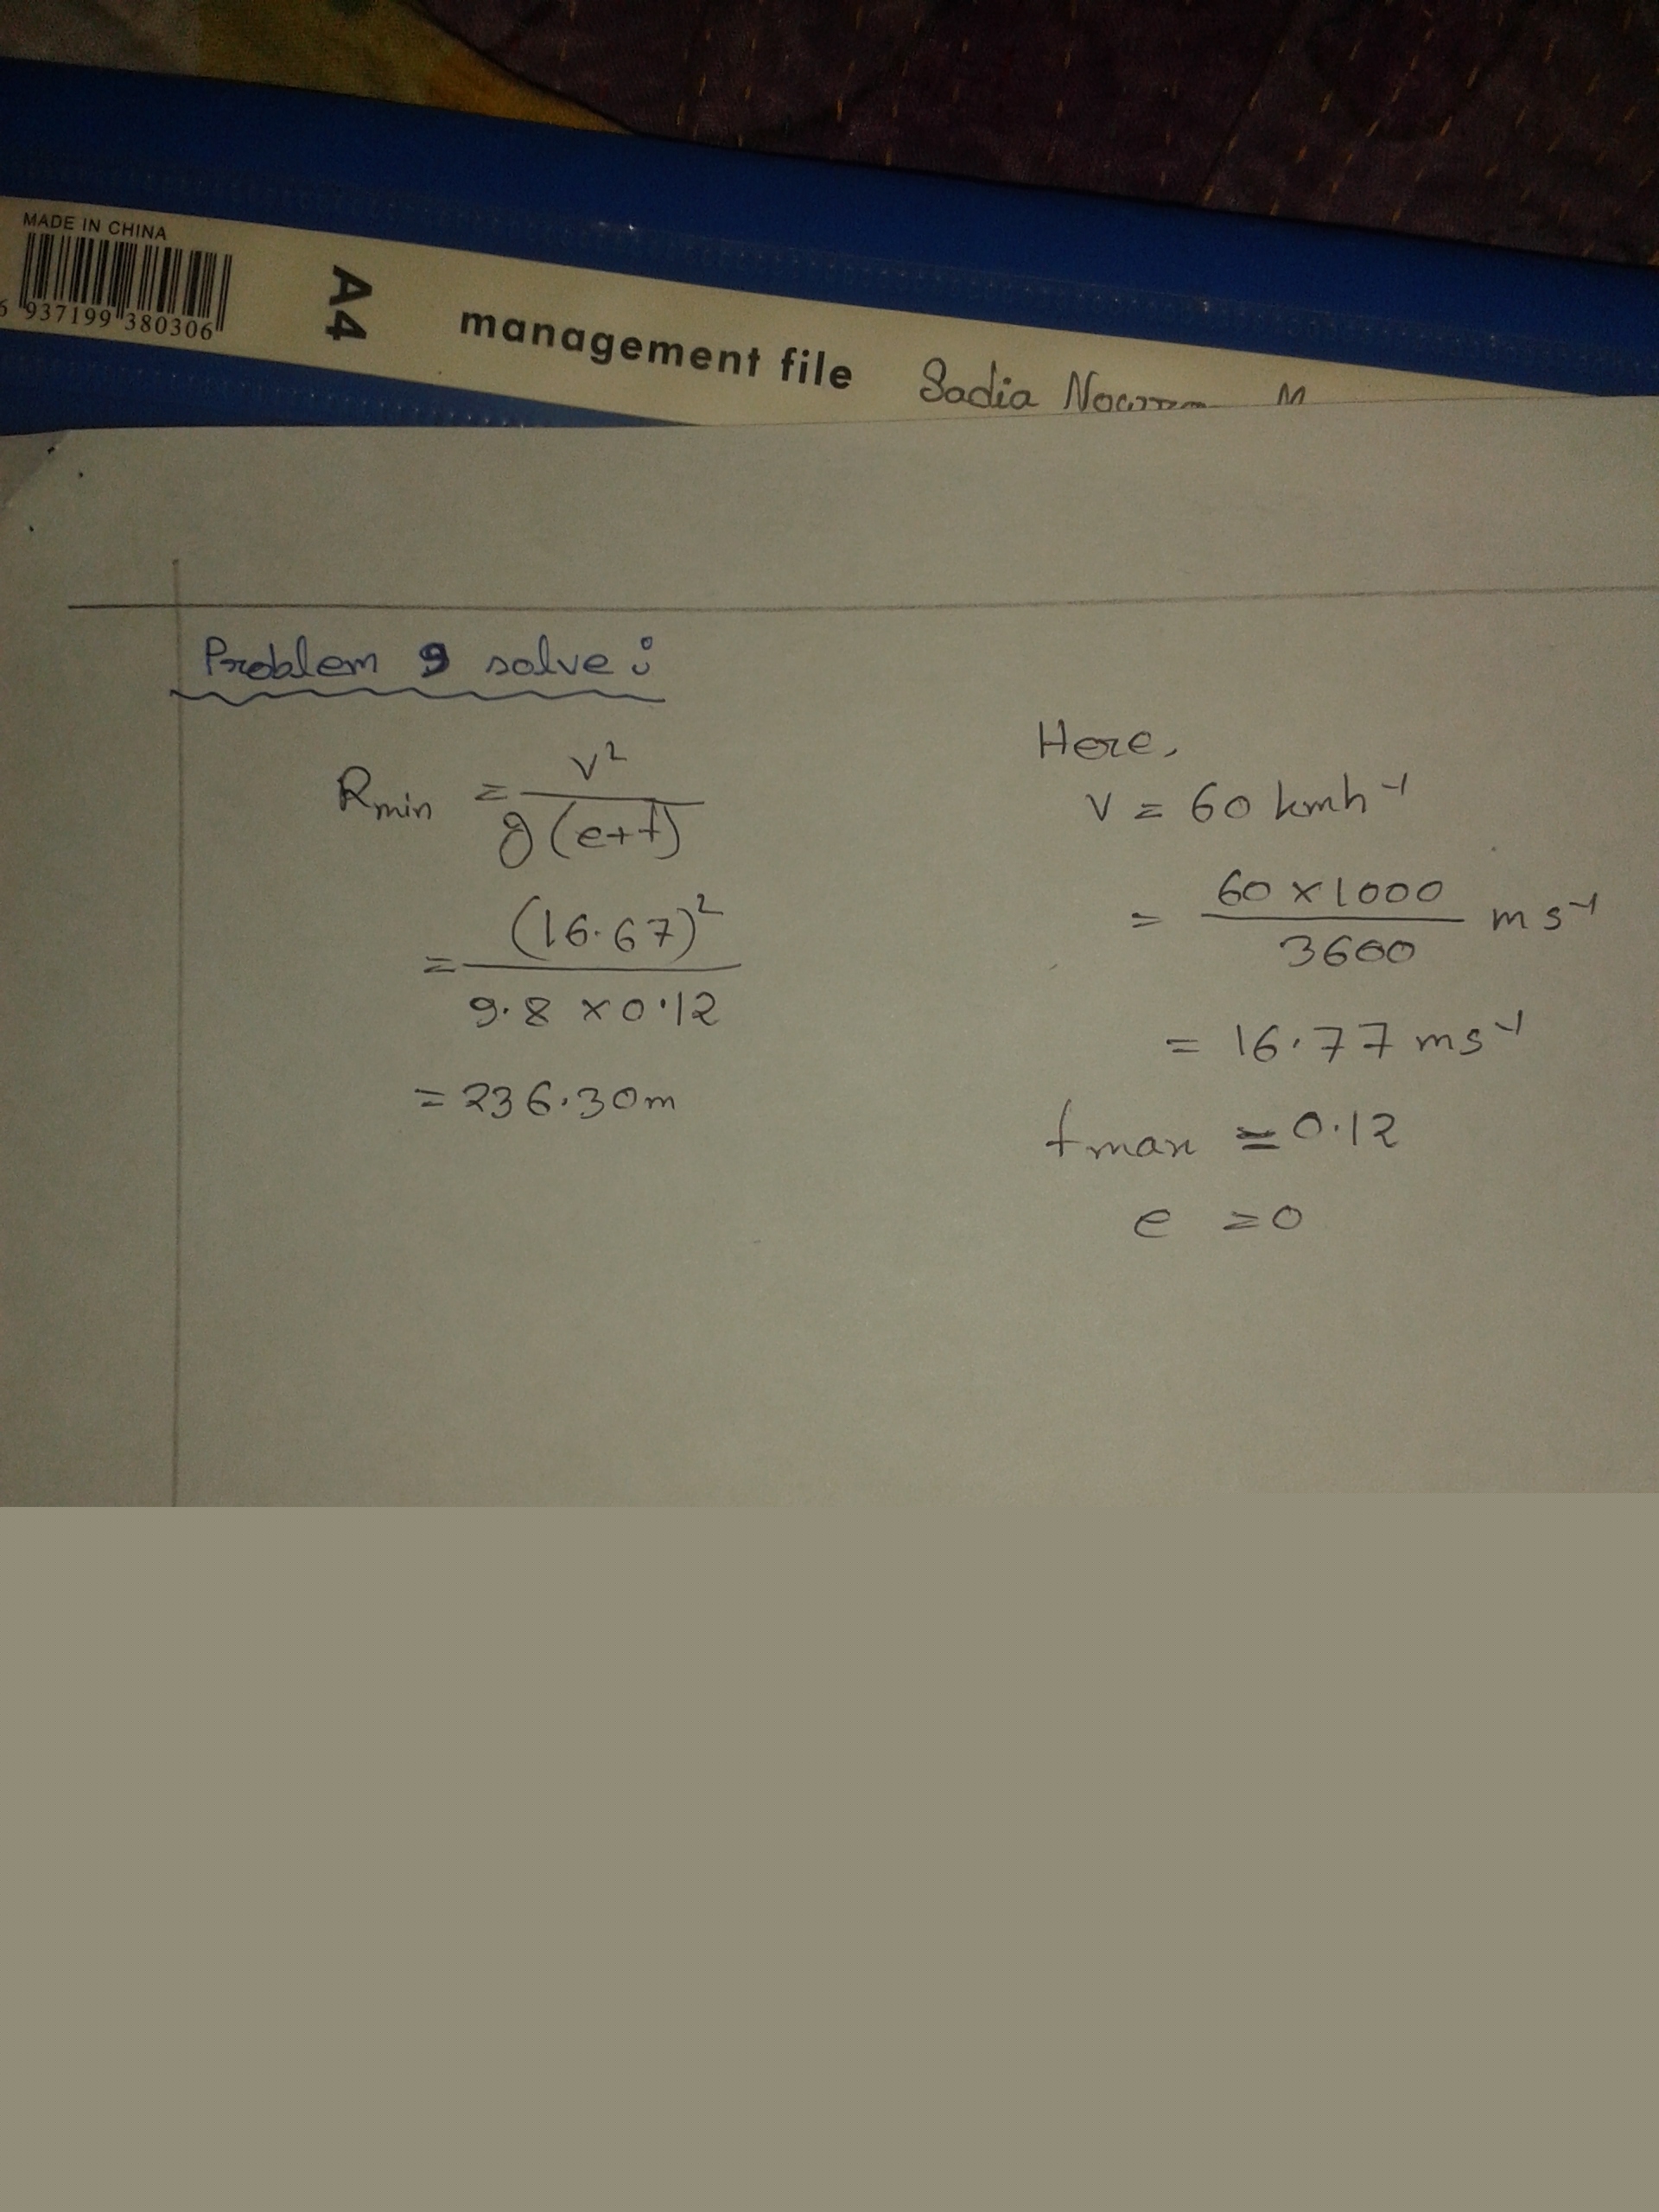 MADE IN CHINA
937199 380306
A4
management file Sadia
Problem 9 solve:
R min = v² / g(e+f)
= (16.67)² / 9.8 × 0.12
= 236.30m
Here,
v = 60 kmh⁻¹
= 60 × 1000 / 3600 ms⁻¹
= 16.77 ms⁻¹
f max = 0.12
e = 0